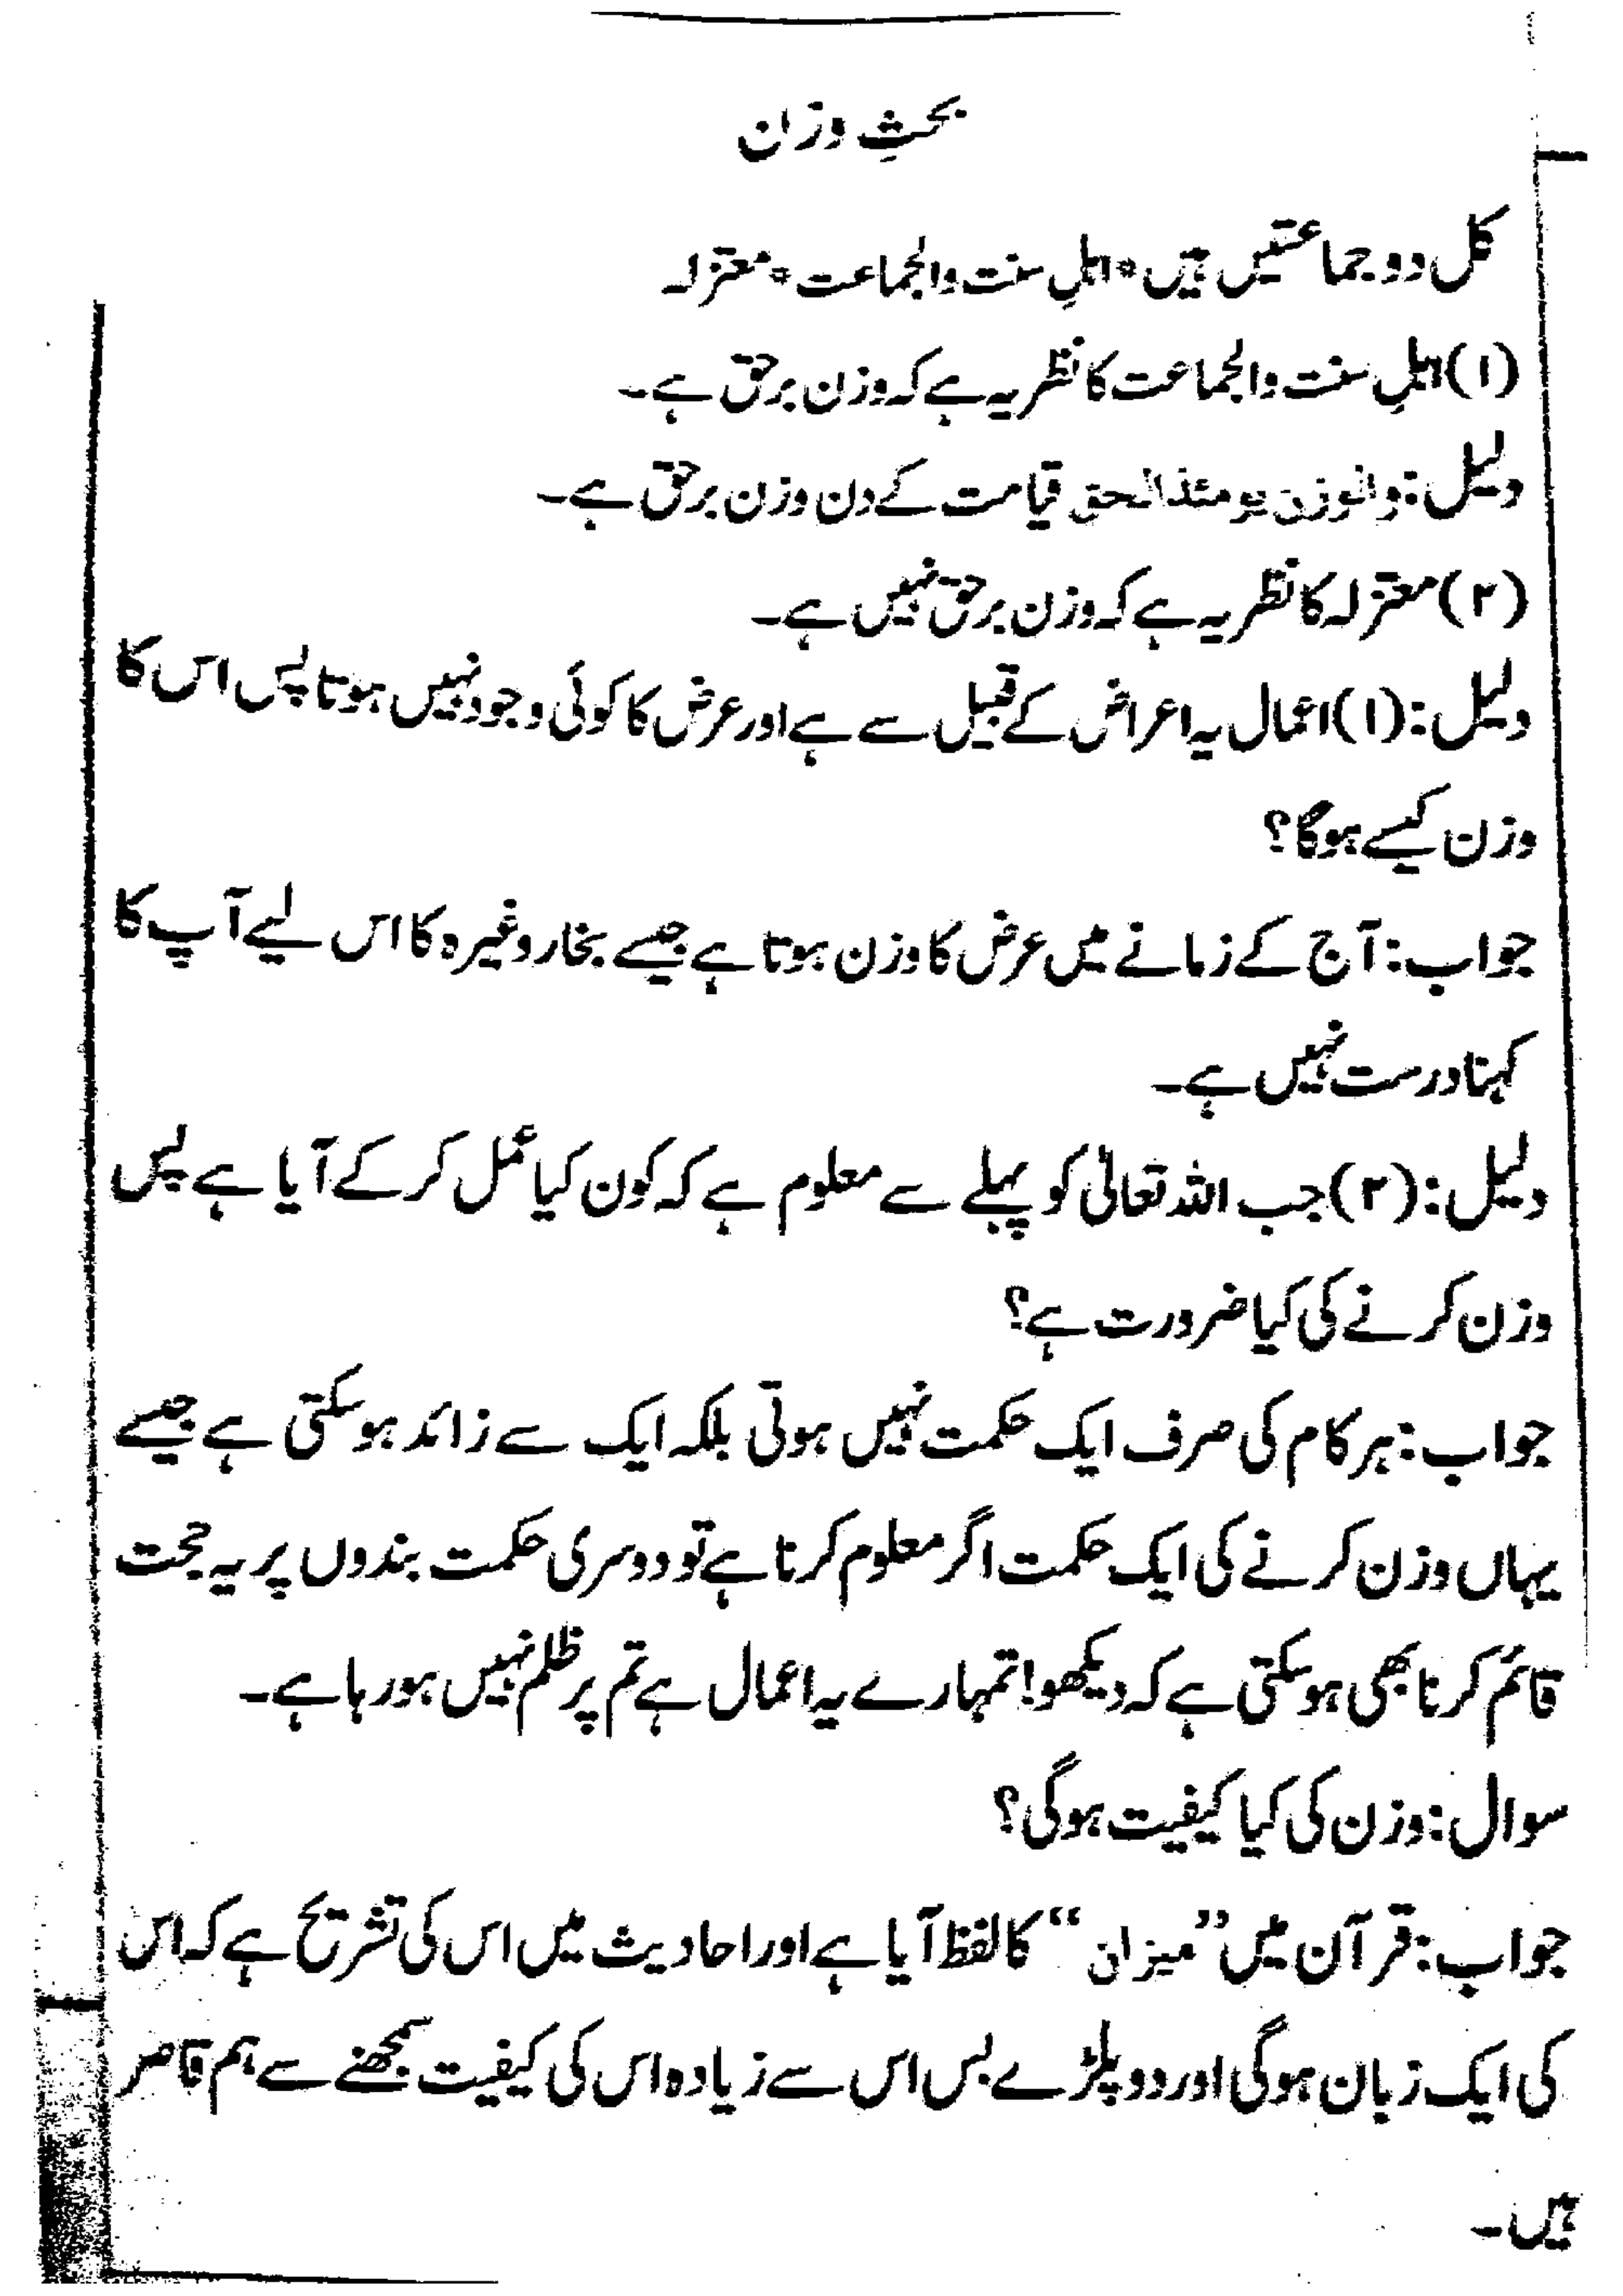 بحثِ وزن
کل دو جماعتیں ہیں * اہلِ سنت والجماعت * معتزلہ
(۱) اہلِ سنت والجماعت کا نظریہ ہے کہ وزن برحق ہے۔
دلیل: والوزن یومئذ الحق قیامت کے دن وزن برحق ہے۔
(۲) معتزلہ کا نظریہ ہے کہ وزن برحق نہیں ہے۔
دلیل: (۱) اعمال یہ اعراض کے قبیل سے ہے اور عرض کا کوئی وجود نہیں ہوتا پس اس کا
وزن کیسے ہوگا؟
جواب: آج کے زمانے میں عرض کا وزن ہوتا ہے جیسے بخار وغیرہ کا اس لیے آپ کا
کہنا درست نہیں ہے۔
دلیل: (۲) جب اللہ تعالیٰ کو پہلے سے معلوم ہے کہ کون کیا عمل کر کے آیا ہے پس
وزن کرنے کی کیا ضرورت ہے؟
جواب: ہر کام کی صرف ایک حکمت نہیں ہوتی بلکہ ایک سے زائد ہو سکتی ہے جیسے
یہاں وزن کرنے کی ایک حکمت اگر معلوم کرنا ہے تو دوسری حکمت بندوں پر یہ حجت
قائم کرنا بھی ہو سکتی ہے کہ دیکھو! تمہارے یہ اعمال ہے تم پر ظلم نہیں ہو رہا ہے۔
سوال: وزن کی کیا کیفیت ہوگی؟
جواب: قرآن میں ”میزان“ کا لفظ آیا ہے اور احادیث میں اس کی تشریح ہے کہ اس
کی ایک زبان ہوگی اور دو پلڑے بس اس سے زیادہ اس کی کیفیت سمجھنے سے ہم قاصر
ہیں۔